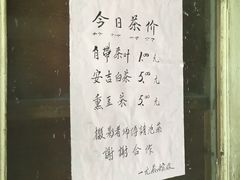 今日茶价
自带茶叶 1.00元
安吉白茶 5.00元
熏豆茶 5.00元
摄影者师傅请泡茶
謝謝合作